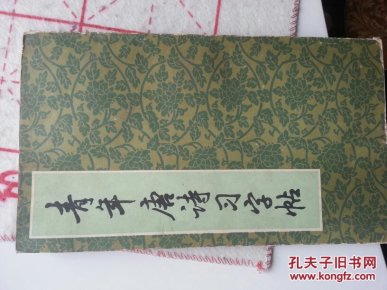 青年唐诗习字帖
孔夫子旧书网
www.kongfz.com